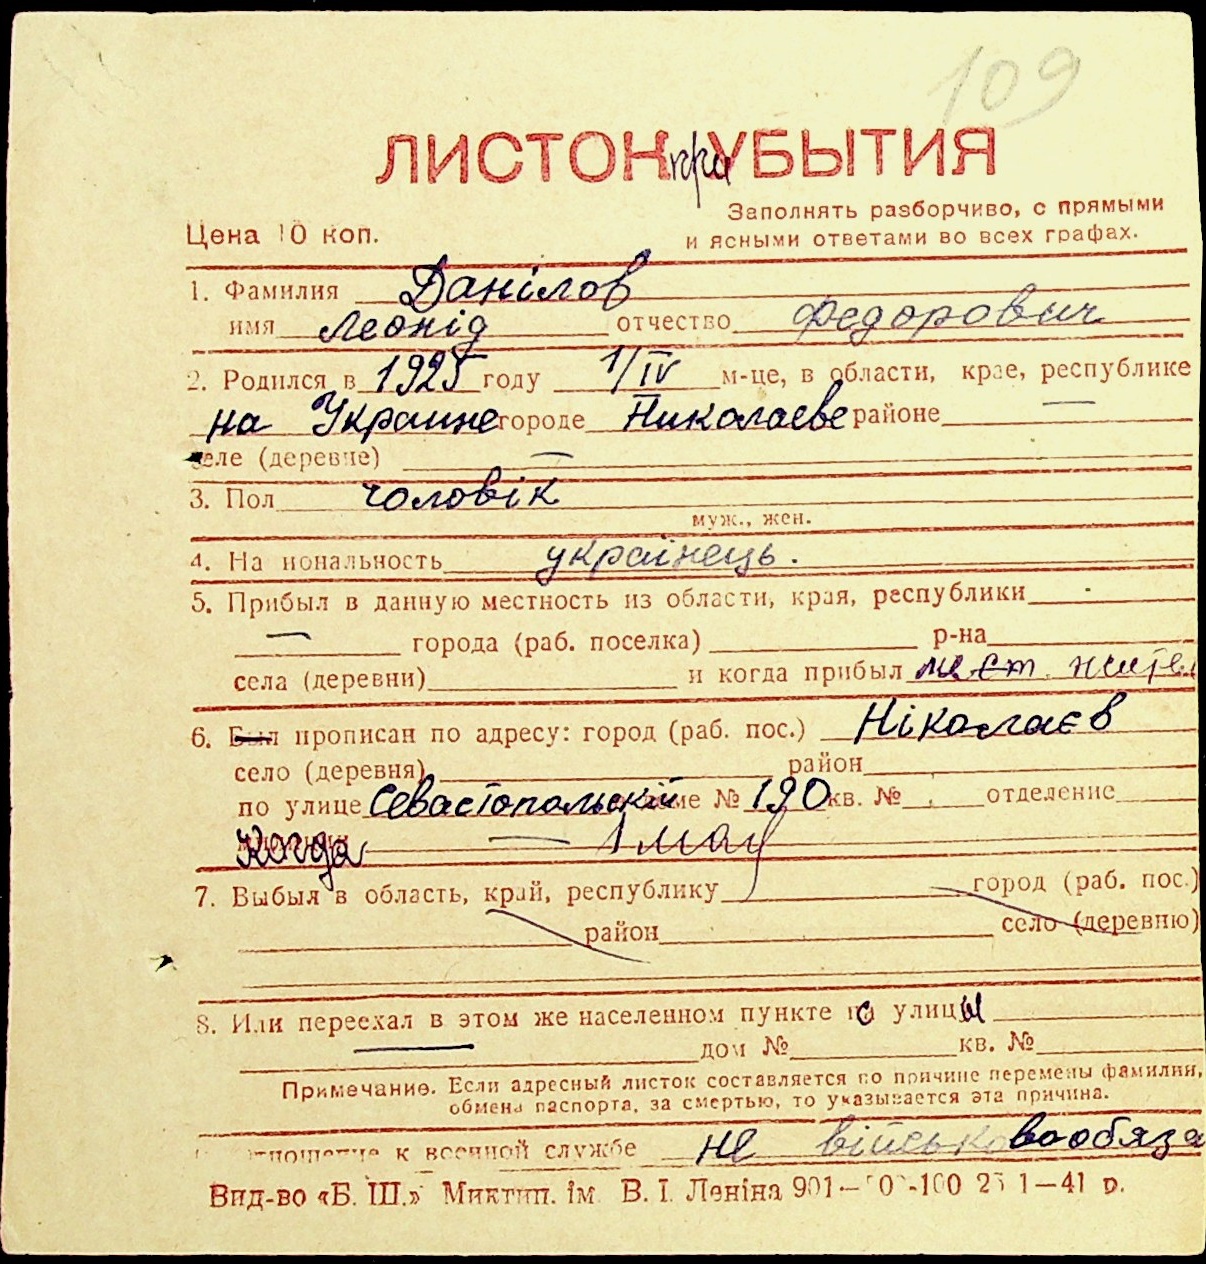 109
ЛИСТОК при УБЫТИЯ
Заполнять разборчиво, с прямыми
Цена 10 коп. и ясными ответами во всех графах.
1. Фамилия Данілов
имя Леонід отчество Федорович
2. Родился в 1925 году 1/IV м-це, в области, крае, республике
на Украине городе Николаеве районе —
селе (деревне) —
3. Пол чоловік
муж., жен.
4. Национальность українець.
5. Прибыл в данную местность из области, края, республики -
— города (раб. поселка) р-на
села (деревни) и когда прибыл мест. жител
6. Был прописан по адресу: город (раб. пос.) Ніколаєв
село (деревня) район
по улице Севастопольскій доме № 190 кв. № отделение
Когда — 1 мая
7. Выбыл в область, край, республику город (раб. пос.)
район село (деревню)
8. Или переехал в этом же населенном пункте с улицы
дом № кв. №
Примечание. Если адресный листок составляется по причине перемены фамилии,
обмена паспорта, за смертью, то указывается эта причина.
отношение к военной службе не військовообяза
Вид-во «Б. Ш.» Миктип. ім. В. І. Леніна 901— -100 1—41 р.